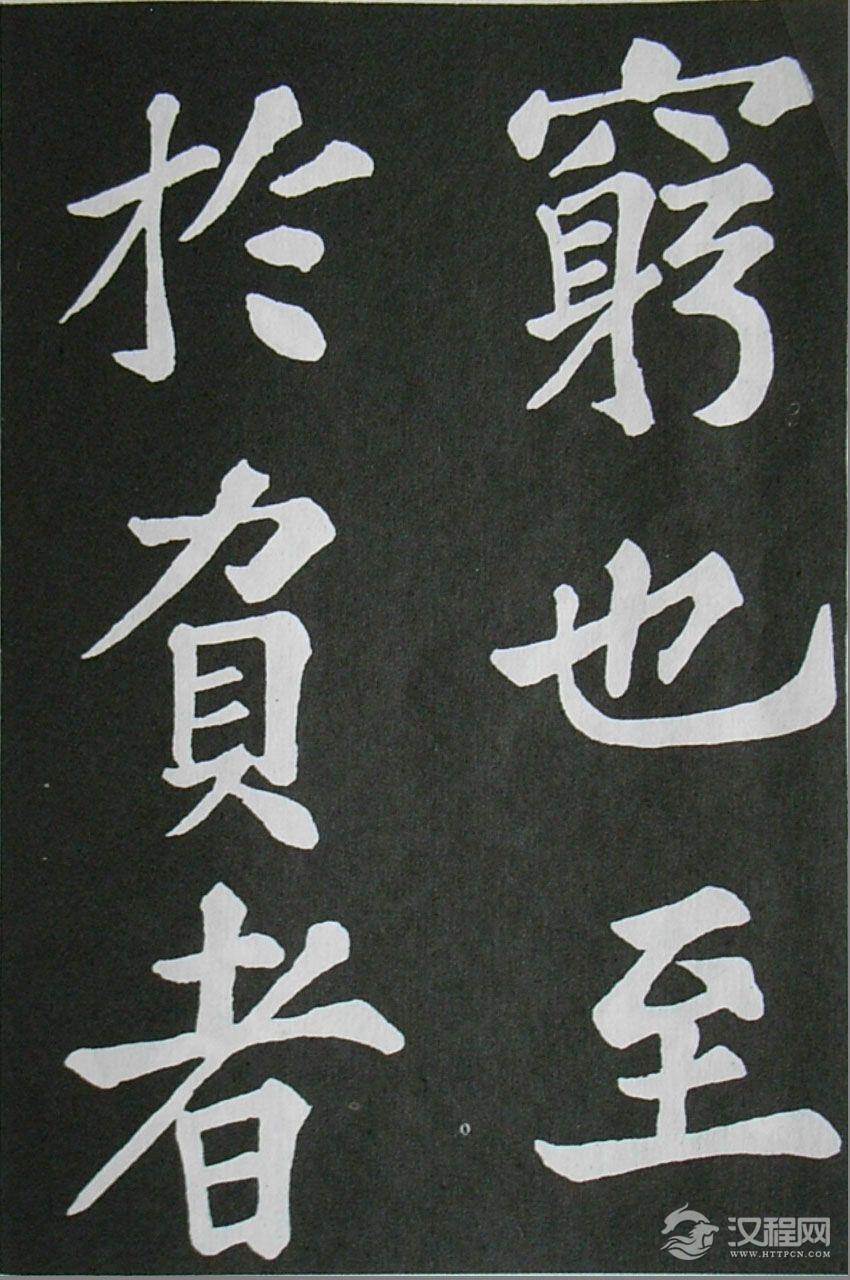 窮也至
於負者
汉程网
WWW.HTTPCN.COM